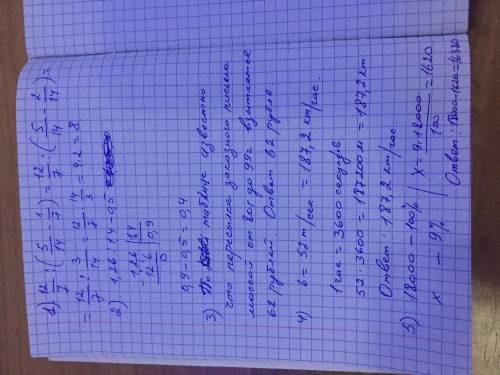 1) 12/7 : (5/14 - 1/7) = 12/7 : (5/14 - 2/14) =
= 12/7 : 3/14 = 12/7 · 14/3 = 4·2 = 8
2) 1,26 : 1,4 - 0,5
0,9 - 0,5 = 0,4
3) По таблице известно
что пересылка заказного письма
массой от 80г до 99г взымается
62 рубля. Ответ 62 рубля
4) v = 52 м/сек = 187,2 км/час.
1 час = 3600 секунд
52 · 3600 = 187200 м = 187,2 км
Ответ: 187,2 км/час.
5) 18000 - 100% | x = 9·18000/100 = 1620
x - 9%
Ответ: 18000-1620=16380